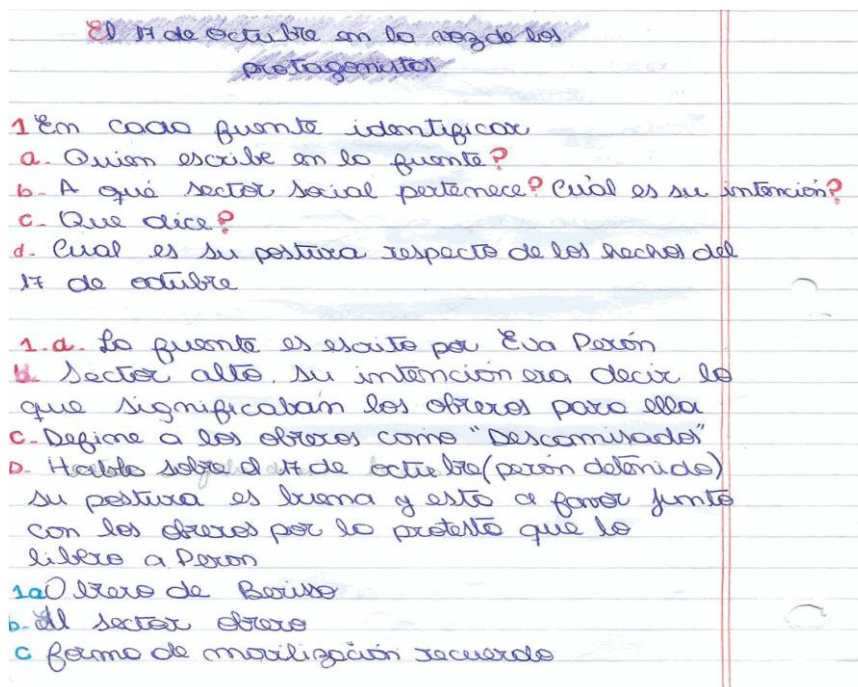 El 17 de octubre en la voz de los
protagonistas
1 En cada fuente identificar
a. Quien escribe en la fuente?
b. A qué sector social pertenece? Cuál es su intención?
c. Que dice?
d. Cual es su postura respecto de los hechos del
17 de octubre
1.a. La fuente es escrita por Eva Perón
b Sector alto. su intención era decir lo
que significaban los obreros para ella
c. Define a los obreros como "Descamisados"
D. Habla sobre el 17 de octubre (perón detenido)
su postura es buena y esta a favor junto
con los obreros por la protesta que lo
libero a Peron
1a Obrero de Berisso
b. Al sector obrero
c forma de movilización recuerdo